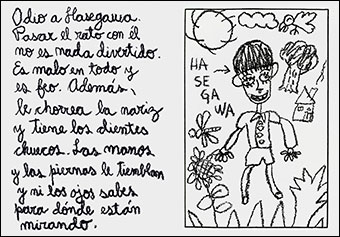 Odio a Hasegawa.
Pasar el rato con él
no es nada divertido.
Es malo en todo y
es feo. Además,
le chorrea la nariz
y tiene los dientes
chuecos. Las manos
y las piernas le tiemblan
y ni los ojos sabes
para dónde están
mirando.
HA
SE
GA
WA